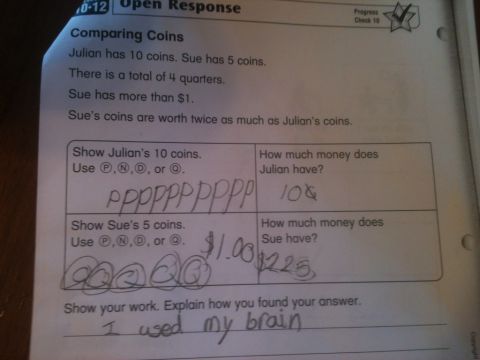 10-12 Open Response
Progress
Check 10
Comparing Coins
Julian has 10 coins. Sue has 5 coins.
There is a total of 4 quarters.
Sue has more than $1.
Sue's coins are worth twice as much as Julian's coins.
Show Julian's 10 coins.
Use Ⓟ,Ⓝ,Ⓓ, or Ⓠ.
PPPPPPPPPP
How much money does
Julian have?
10¢
Show Sue's 5 coins.
Use Ⓟ,Ⓝ,Ⓓ, or Ⓠ.
$1.00
How much money does
Sue have?
$2.25
Show your work. Explain how you found your answer.
I used my brain